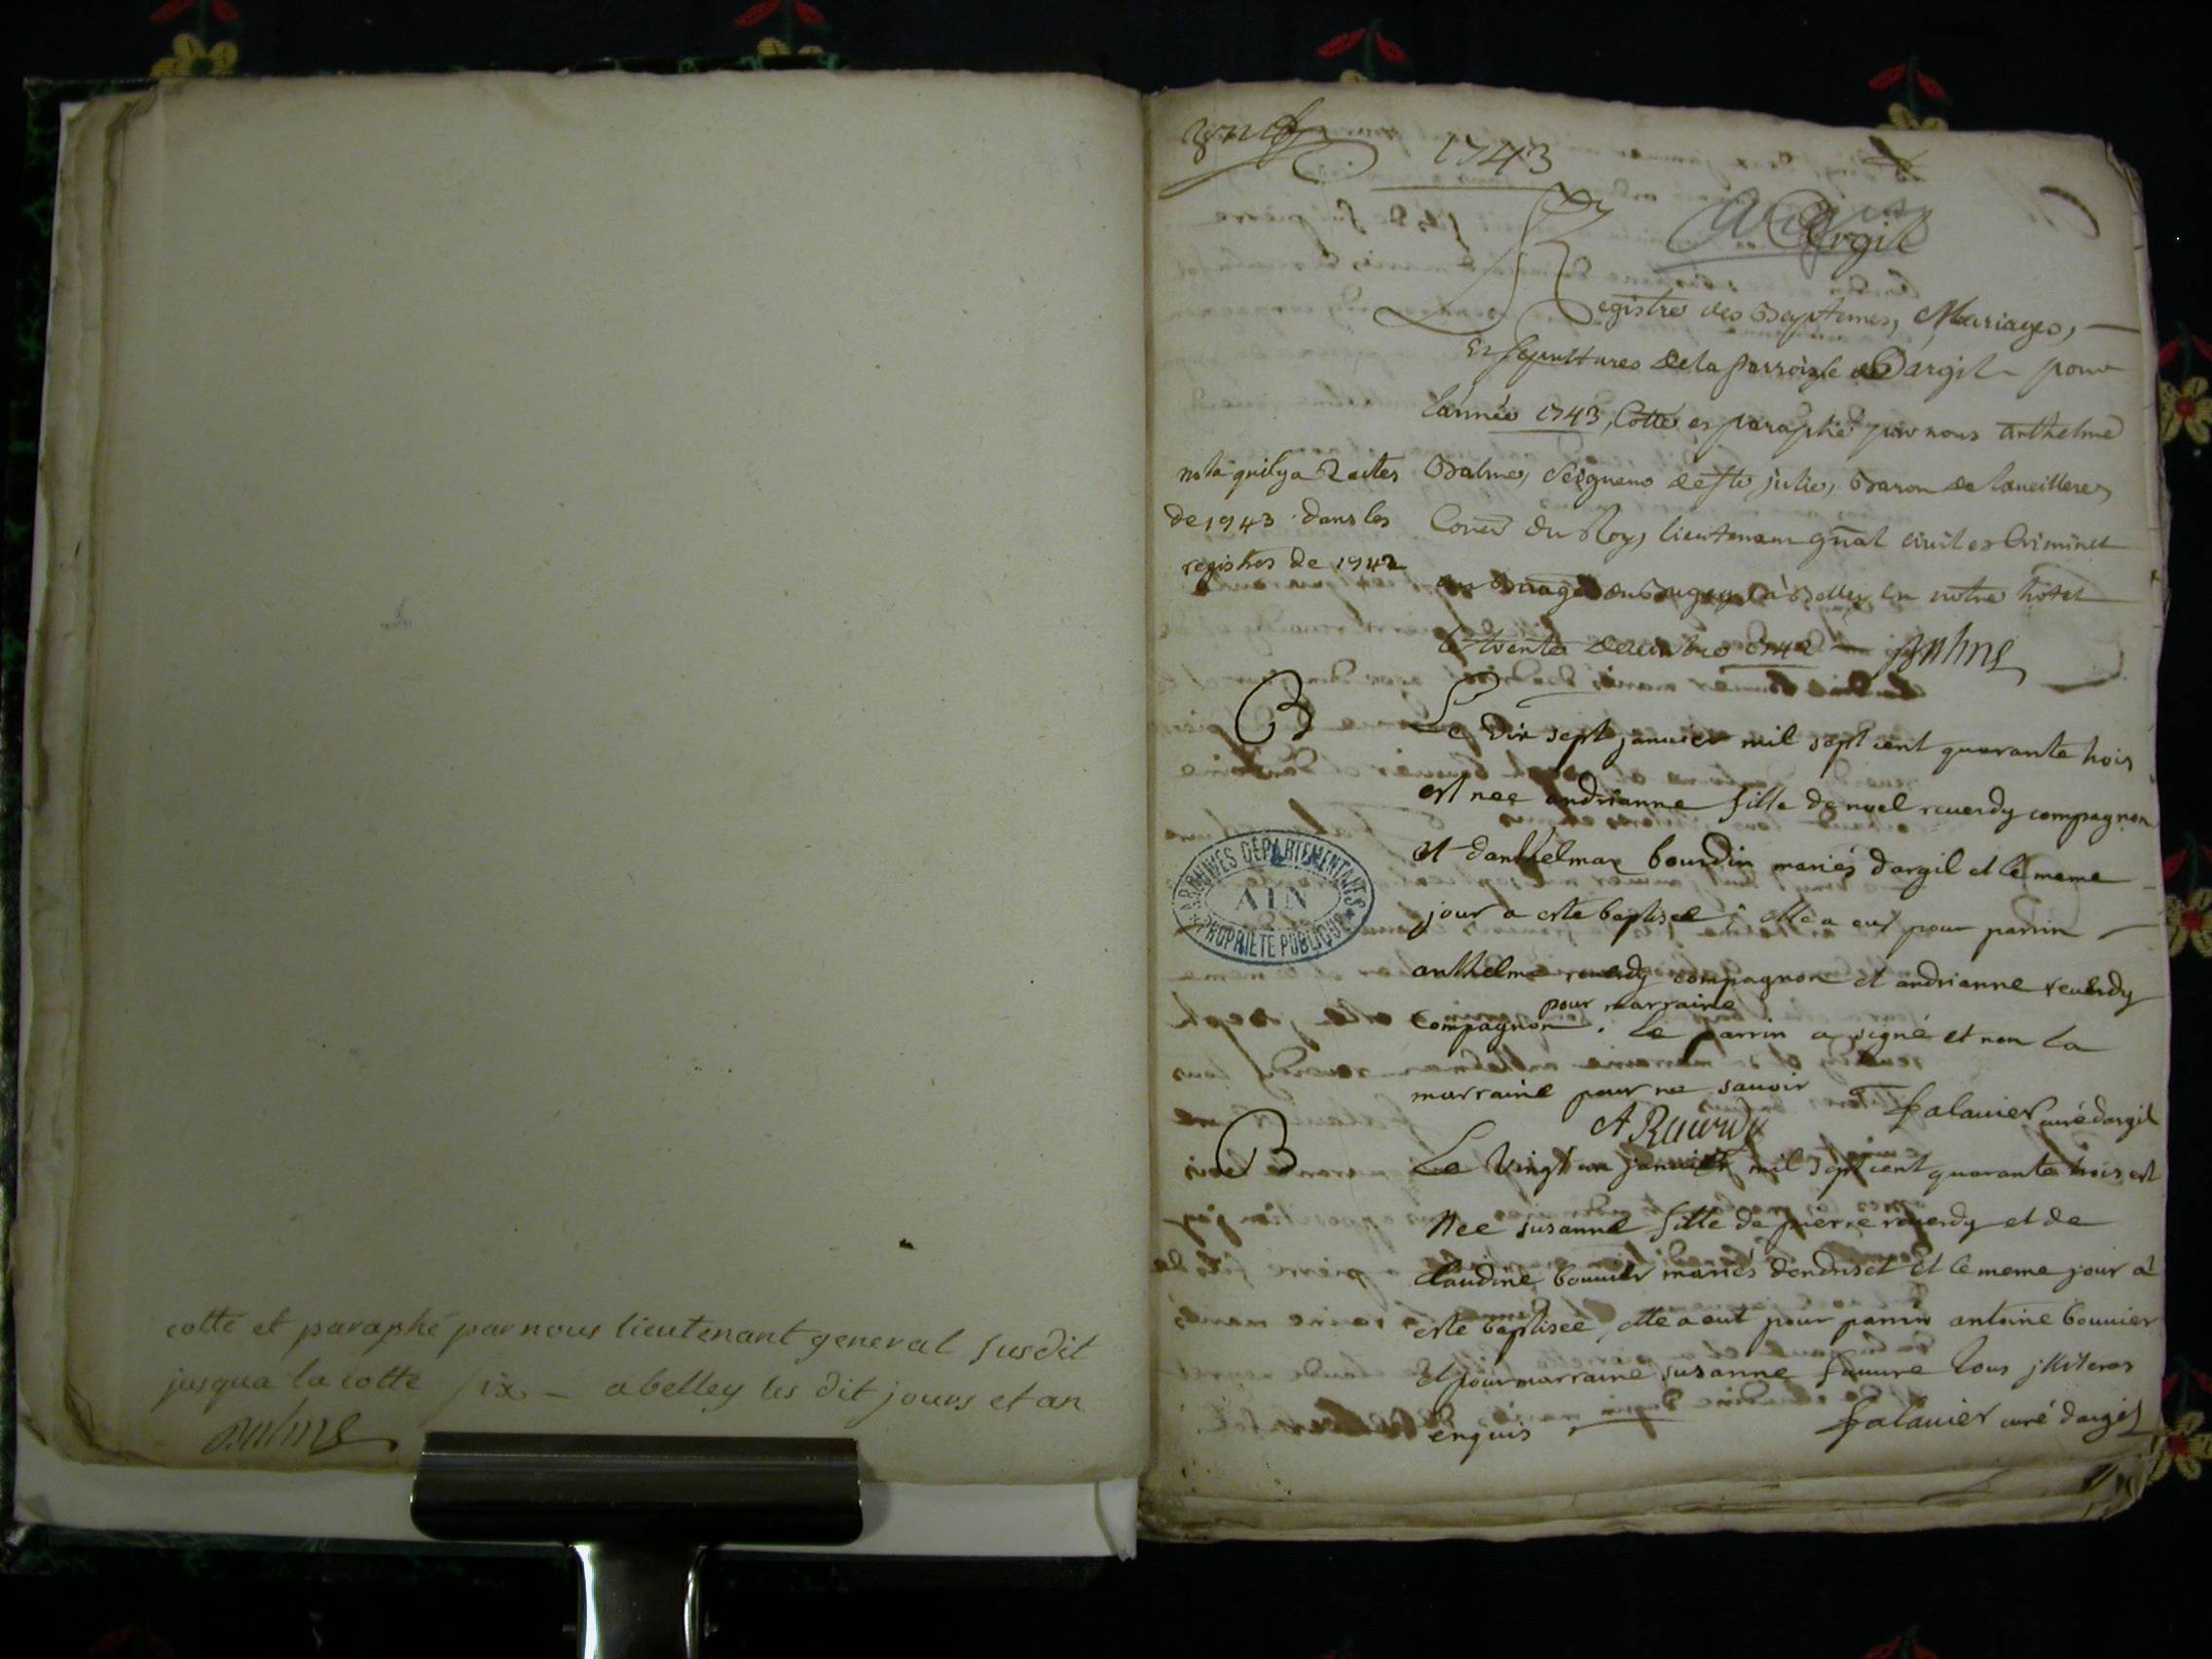 cotté et paraphé par nous lieutenant general susdit
jusqua la cotte six - a belley les dit jours et an
Balme
1743
Argil
Registre des Baptemes, Mariages,
Et sepultures de la parroisse Dargil pour
lannée 1743, Cotté et paraphé par nous Anthelme
Balme, Seigneur de Ste julie, Baron de
Coner du Roy, lieutenant gnal civil et Criminel
au Bailage du Bugey à Belley en notre hotel
le trente decembre 1742 Balme
nota quil y a 2 actes
de 1743 dans les
registres de 1742
B
Le dix sept janvier mil sept cent quarante trois
est nee andrianne fille de noel reuerdy compagnon
et danthelmaz bourdin mariés dargil et le meme
jour a esté baptisee elle a eut pour parrin
anthelme reuerdy compagnon et andrianne reuerdy
pour marraine
compagnon. Le parrin a signé et non la
marraine pour ne sauoir
A Reuerdy
falauier curé dargil
ARCHIVES DÉPARTEMENTALES
AIN
PROPRIÉTÉ PUBLIQUE
B
Le vingt un janvier mil sept cent quarante trois est
Nee susanne fille de pierre reuerdy et de
claudine bouuier mariés dendriset et le meme jour a
esté baptisee, elle a eut pour parrin antoine bouuier
et pour marraine susanne fauure tous jlliteres
enquis
falauier curé dargil